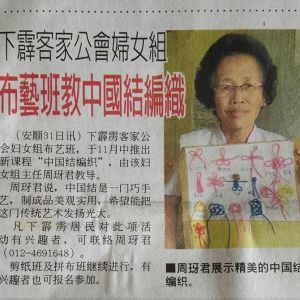 下霹客家公會婦女組
布藝班教中國結編織
（安順31日讯）下霹雳客家公
会妇女组布艺班，于11月中推出
新课程“中国结编织”，由该妇
女组主任周玡君教导。
周玡君说，中国结是一门巧手
艺，制成品美观实用，希望能把
这门传统艺术发扬光大。
凡下霹雳居民对此项活
动有兴趣者，可联络周玡君
（012-4691648）。
剪纸班及拼布班继续进行，有
兴趣者也可报名参加。
■周玡君展示精美的中国结
编织。